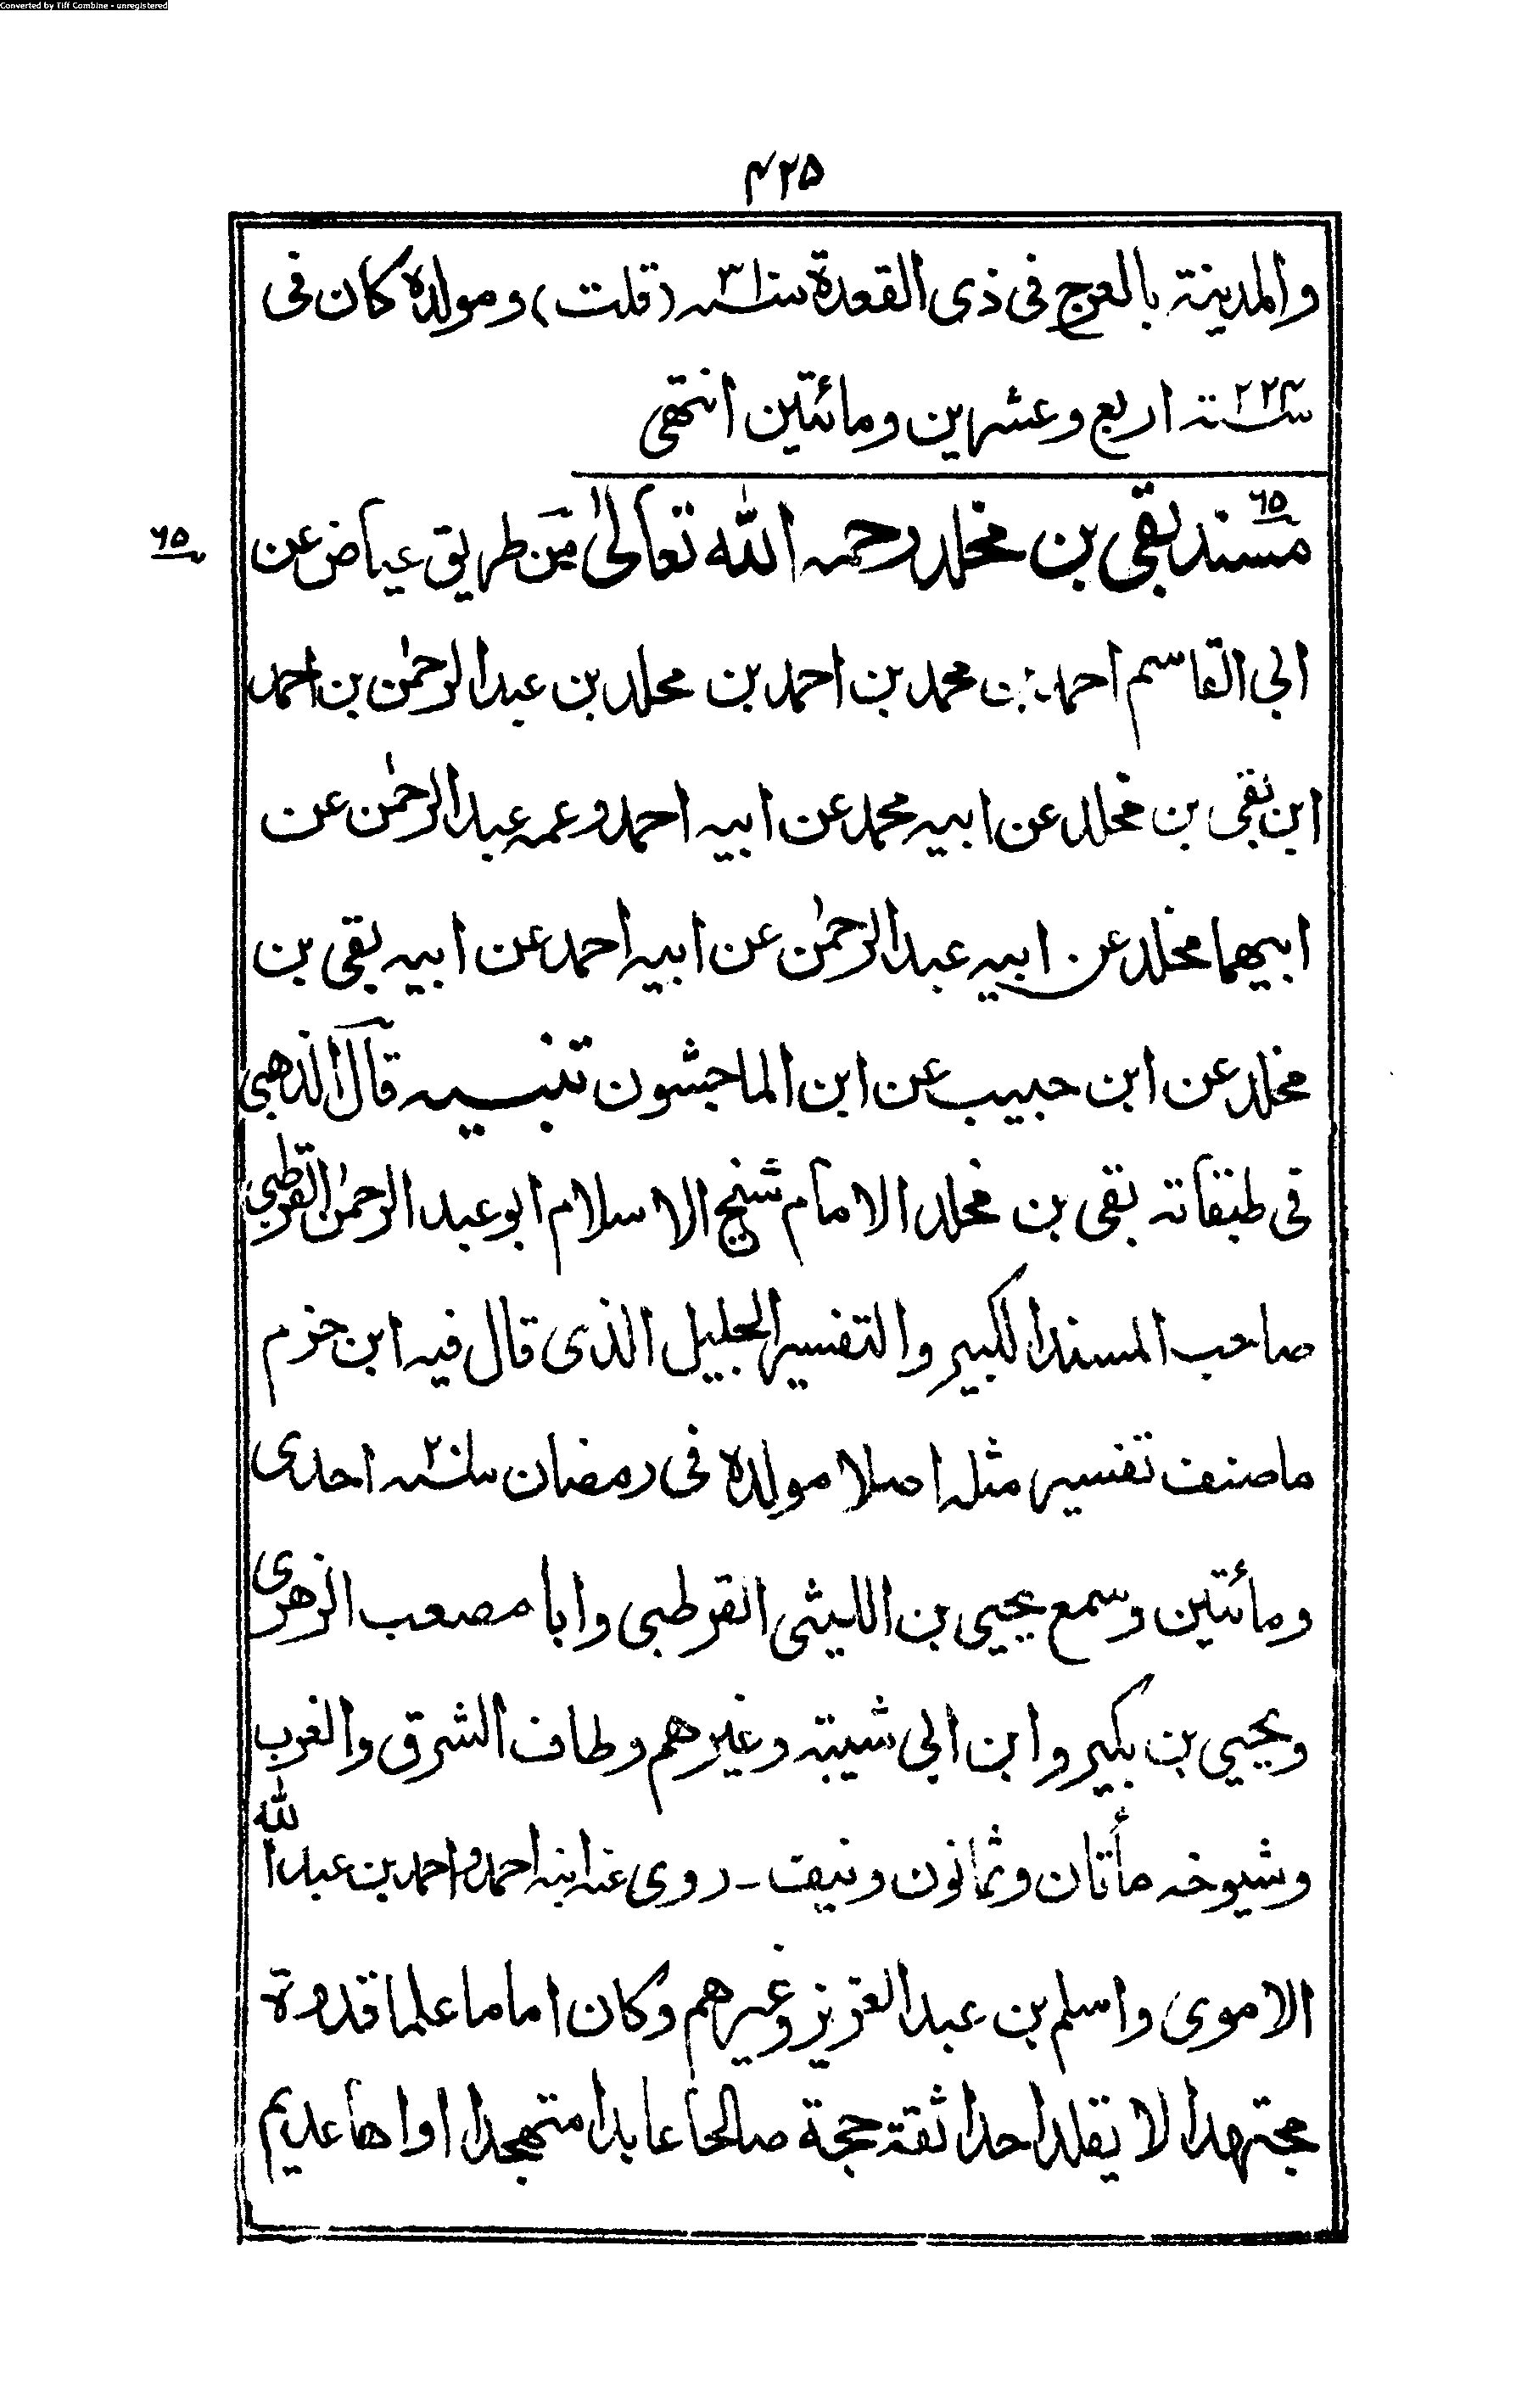 Converted by Tiff Combine - unregistered
۴۲۵
والمدينة بالعرج فى ذى القعدة سنة ۳۱۰ (قلت) ومولده كان فى
سنة ۲۲۴ اربع وعشرين ومائتين انتهى
۶۵
مسند بقى بن مخلد رحمه الله تعالىٰ من طريق عياض عن
۶۵
ابى القاسم احمد بن محمد بن احمد بن مخلد بن عبد الرحمٰن بن احمد
ابن بقى بن مخلد عن ابيه محمد عن ابيه احمد وعمه عبد الرحمٰن عن
ابيهما مخلد عن ابيه عبد الرحمٰن عن ابيه احمد عن ابيه بقى بن
مخلد عن ابن حبيب عن ابن الماجشون تنبيه قال الذهبى
فى طبقاته بقى بن مخلد الامام شيخ الاسلام ابو عبد الرحمٰن القرطبى
صاحب المسند الكبير والتفسير الجليل الذى قال فيه ابن حزم
ما صنف تفسير مثله اصلا مولده فى رمضان سنة احدى
ومائتين وسمع يحيى بن الليثى القرطبى وابا مصعب الزهرى
ويحيى بن بكير وابن ابى شيبة وغيرهم وطاف الشرق والغرب
وشيوخه مأتان وثمانون ونيف - روى عنه ابنه احمد واحمد بن عبد الله
الاموى واسلم بن عبد العزيز وغيرهم وكان اماما علما قدوة
مجتهدا لا يقلد احدا ثقة حجة صالحا عابدا متهجدا اواها عديم